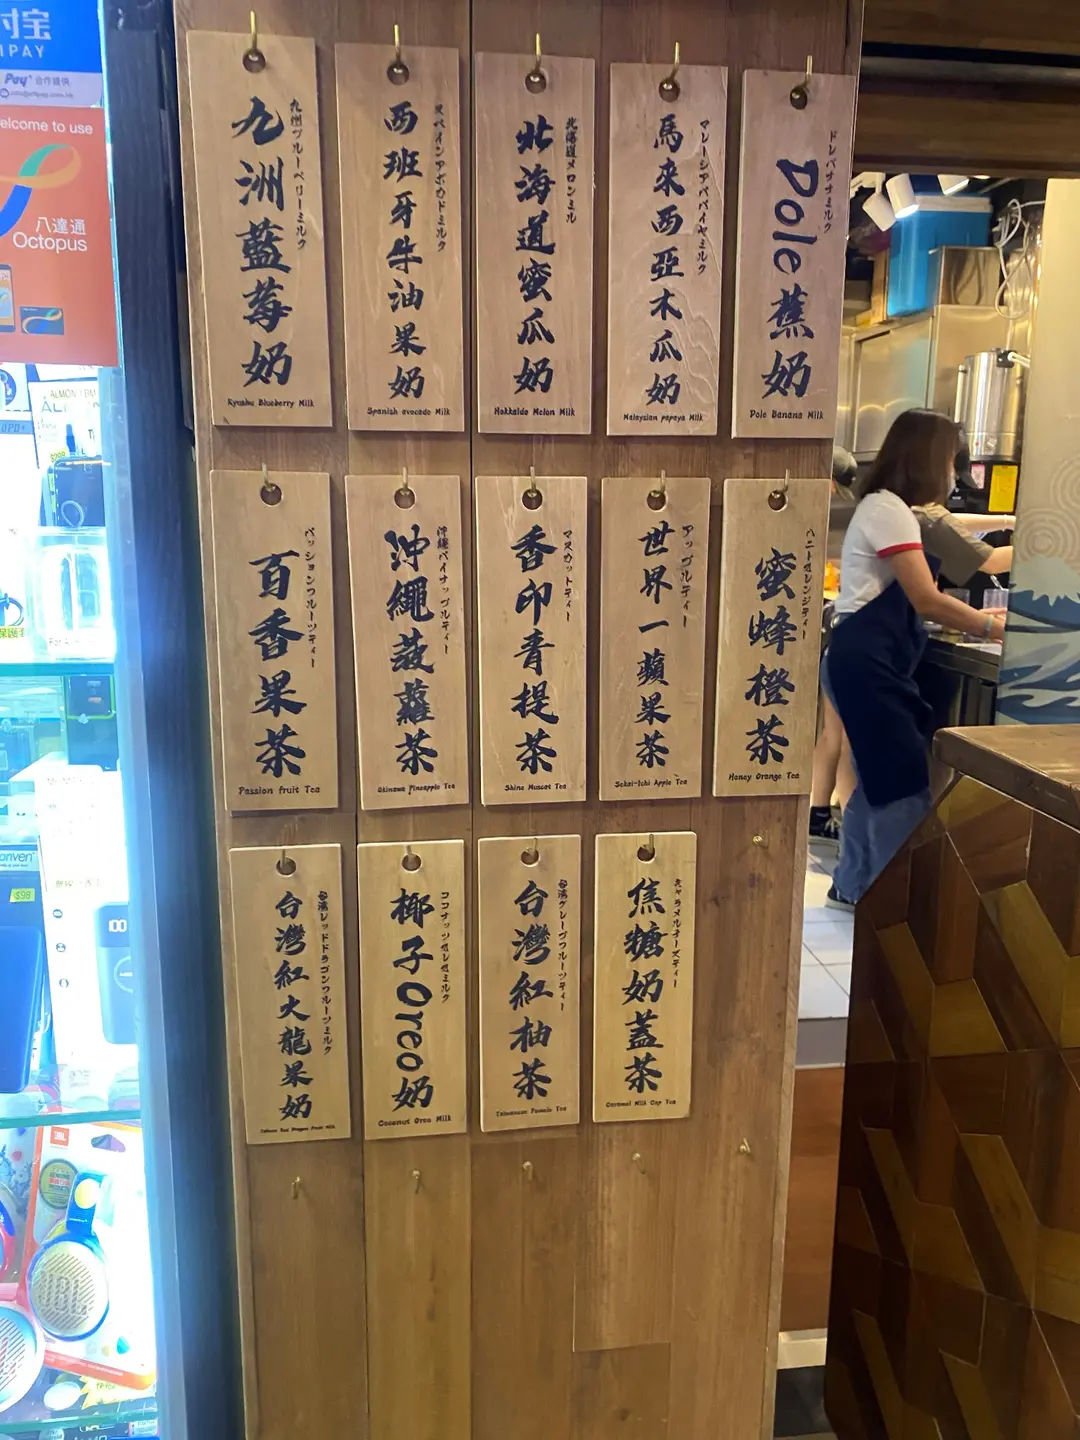 付宝
IPAY
Pay
合作提供
elcome to use
八達通
Octopus
九洲藍莓奶
九州ブルーベリーミルク
Kyushu Blueberry Milk
西班牙牛油果奶
スペインアボカドミルク
Spanish avocado Milk
北海道蜜瓜奶
北海道メロンミルク
Hokkaido Melon Milk
馬來西亞木瓜奶
マレーシアパパイヤミルク
Malaysian papaya Milk
Dole蕉奶
ドレバナナミルク
Dole Banana Milk
百香果茶
パッションフルーツティー
Passion fruit Tea
沖繩菠蘿茶
沖縄パイナップルティー
Okinawa Pineapple Tea
香印青提茶
マスカットティー
Shine Muscat Tea
世界一蘋果茶
アップルティー
Sekai-Ichi Apple Tea
蜜蜂橙茶
ハニーオレンジティー
Honey Orange Tea
台灣紅火龍果奶
台湾レッドドラゴンフルーツミルク
Taiwan Red Dragon Fruit Milk
椰子Oreo奶
ココナッツオレオミルク
Coconut Oreo Milk
台灣紅柚茶
台湾グレープフルーツティー
Taiwanese Pomelo Tea
焦糖奶蓋茶
キャラメルチーズティー
Caramel Milk Cap Tea
$98
JBL
JBL